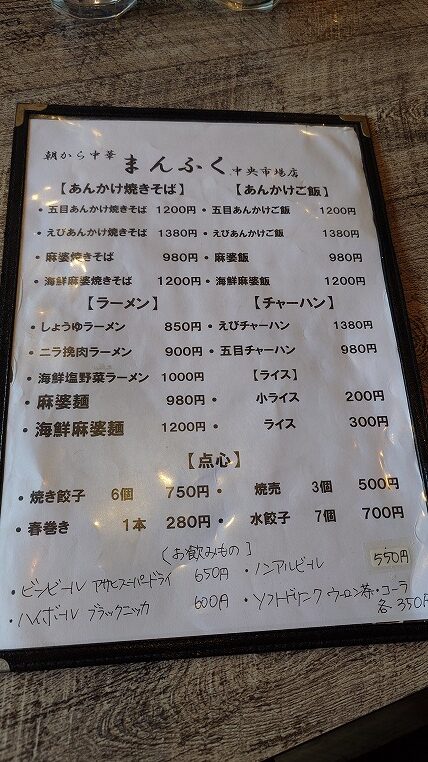 朝から中華 まんぷく 中央市場店
【あんかけ焼きそば】 【あんかけご飯】
・五目あんかけ焼きそば 1200円 ・五目あんかけご飯 1200円
・えびあんかけ焼きそば 1380円 ・えびあんかけご飯 1380円
・麻婆焼きそば 980円 ・麻婆飯 980円
・海鮮麻婆焼きそば 1200円 ・海鮮麻婆飯 1200円
【ラーメン】 【チャーハン】
・しょうゆラーメン 850円 ・えびチャーハン 1380円
・ニラ挽肉ラーメン 900円 ・五目チャーハン 980円
・海鮮塩野菜ラーメン 1000円 【ライス】
・麻婆麺 980円 ・小ライス 200円
・海鮮麻婆麺 1200円 ・ライス 300円
【点心】
・焼き餃子 6個 750円 ・焼売 3個 500円
・春巻き 1本 280円 ・水餃子 7個 700円
[お飲みもの]
・ビンビール アサヒスーパードライ 650円 ・ノンアルビール 550円
・ハイボール ブラックニッカ 600円 ・ソフトドリンク ウーロン茶・コーラ
各350円